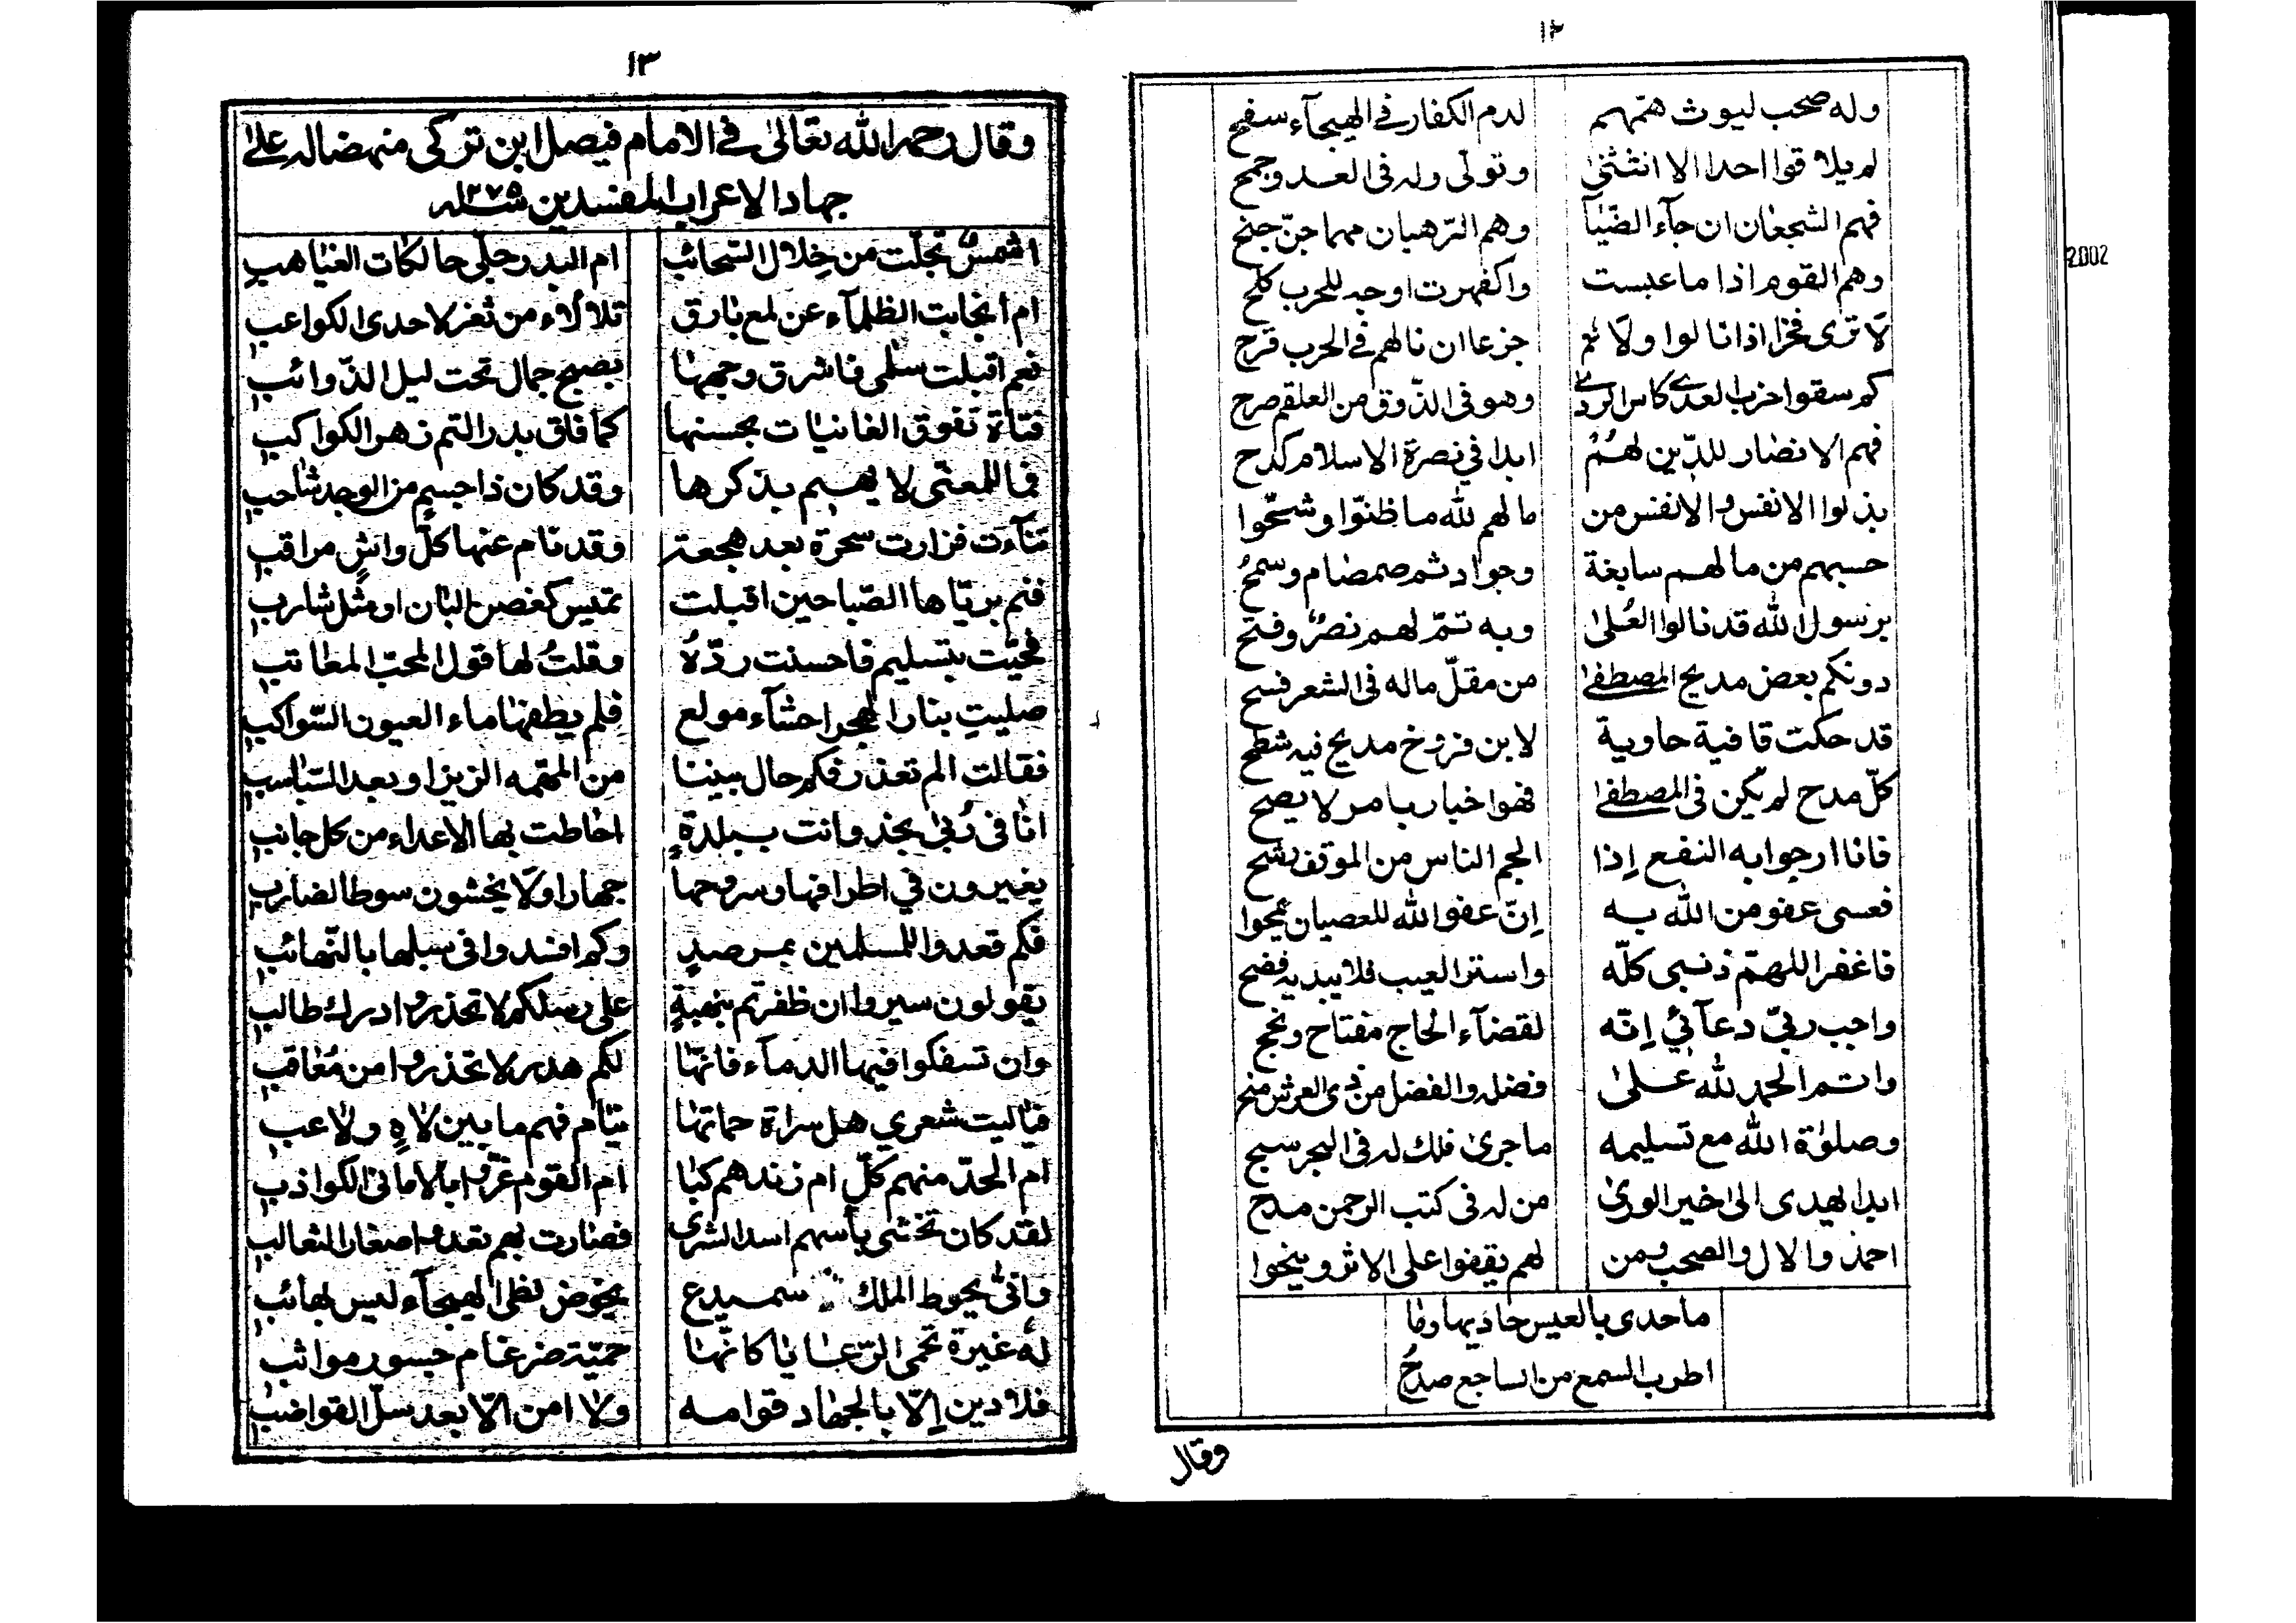 ١٢
وله صحب ليوث همّهم لدم الكفار في الهيجآء سفح
لم يلاقوا احدا الا انثنىٰ وتولّى وله فى العدو جمح
فهم الشجعان ان جآء الضّيآ وهم الرّهبان مهما جنّ جنح
وهم القوم اذا ما عبست واكفهرت اوجه للحرب كلح
لا ترى فخرا اذا نالوا ولا ثم جزعا ان نالهم في الحرب قرح
كم سقوا حزب العدى كاس الردى وهو فى الذّوق من العلقم صرح
فهم الانصار للدّين لهُمُ ابدا في نصرة الاسلام كدح
بذلوا الانفس والانفس من ما لهم لله ما ظنّوا وشحّوا
حسبهم من ما لهم سابغة وجواد ثم صمصام وسمحُ
برسول الله قد نالوا العُلىٰ وبه تمّ لهم نصرٌ وفتح
دونكم بعض مديح المصطفىٰ من مقلّ ماله فى الشعر فسح
قد حكت قافية حاوية لابن فرّوخ مديح فيه شطح
كلّ مدح لم يكن فى المصطفىٰ فهو اخبار بامر لا يصح
فانا ارجوا به النفع إذا الجم الناس من الموقف رشح
فعسى عفو من الله به إنّ عفو الله للعصيان يمحوا
فاغفر اللهمّ ذنبى كلّه واستر العيب فلا يبديه فضح
واجب ربّي دعآئي إنّه لقضآء الحاج مفتاح ونجح
واتم الحمد لله علىٰ فضله والفضل من ذى العرش منح
وصلوٰة الله مع تسليمه ما جرىٰ فلك له فى البحر سبح
ابدا يهدى الىٰ خير الورىٰ من له فى كتب الرحمن مدح
احمد والال والصحب ومن لهم يقفوا على الاثر وينحوا
ما حدى بالعيس حاديها وما
اطرب السمع من الساجع صدحُ
وقال
١٣
وقال رحمه الله تعالىٰ في الامام فيصل ابن تركى منهضا له علىٰ
جهاد الاعراب المفسدين سنة ١٢٧٥
اشمسٌ تجلّت من خِلال السّحائب ام البدر جلّى حالكات الغياهب
ام انجابت الظلمآء عن لمع بارق تلالاء من ثغر لاحدى الكواعب
نعم اقبلت سلمى فاشرق وجهها بصبح جمال تحت ليل الذّوائب
فتاة تفوق الغانيات بحسنها كما فاق بدر التم زهر الكواكب
فما للمعنّى لا يهيم بذكرها وقد كان ذا جسم من الوجد شاحب
تنآءت فزارت سحرة بعد هجعة وقد نام عنها كلّ واشٍ مراقب
فنم بريّاها الصّبا حين اقبلت تميس كغصن البان او مثل شارب
فحيّت بتسليم فاحسنت ردّهُ وقلتُ لها قول المحب المعاتب
صليتِ بنار الهجر احشآء مولع فلم يطفها ماء العيون السّواكب
فقالت الم تعذر فكم حال بيننا من المهمه الزيزا وبعد السّباسب
انا فى رُبىٰ نجد وانت ببلدةٍ احاطت بها الاعداء من كل جانب
يغيرون في اطرافها وسروحها جهارا ولا يخشون سوط الضارب
فكم قعدوا للمسلمين بمرصدٍ وكم افسدوا فى سبلها بالنّهائب
يقولون سيروا ان ظفرتم بنهبةٍ على رسلكم لا تحذروا درك طالب
وان تسفكوا فيها الدمآء فانّها لكم هدر لا تحذروا من مُعاقب
فيا ليت شعري هل سراة حماتها نيام فهم ما بين لاهٍ ولا عب
ام الحدّ منهم كلّ ام زندهم كبا ام القوم غرّوا بالاماني الكواذب
لقد كان تخشى بأسهم اسد الشرى فصارت بهم تعدوا صغار الثعالب
وانّىٰ يحوط الملك سميدع يخوض لظى الهيجآء ليس بهائب
له غيرة تحمى الرّعايا كانّها حميّة ضرغام جسور مواثب
فلا دين إلّا بالجهاد قوامه ولا امن الّا بعد سلّ القواضب